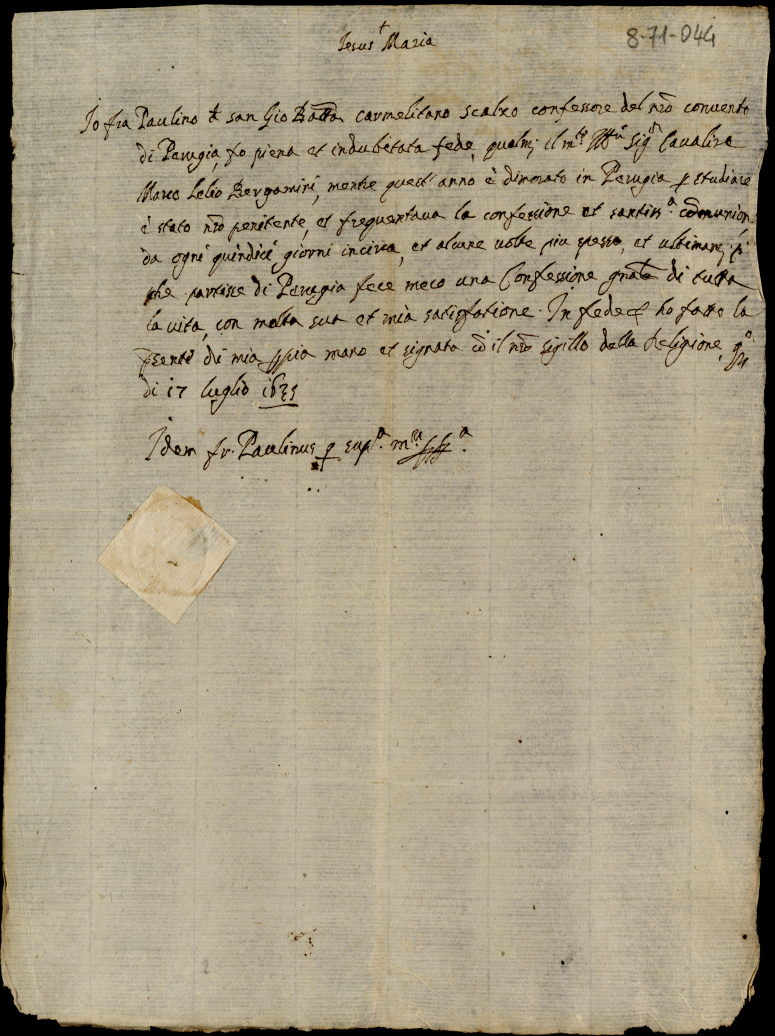 Jesus † Maria
8-71-044
Io fra Paulino di san Gio Batta carmelitano scalzo confessore del nro convento
di Perugia, fo piena et indubitata fede, qualm; il m.to Ill.re Sig.r Cavalire
Marco Lelio Bergamini, mentre quest' anno è dimorato in Perugia p studiare
è stato nro penitente, et frequentava la confessione et santiss.a cōmunion
da ogni quindici giorni incirca, et alcune uolte piu spesso, et ultimam; p
che partisse di Perugia fece meco una Confessione gnale di tutta
la uita, con molta sua et mia satisfatione. In fede ho fatto la
psente di mia ppia mano et signata cō il nro sigillo della Religione,
di 17 luglio
Idem fr. Paulinus q sup.a m.u pp.a